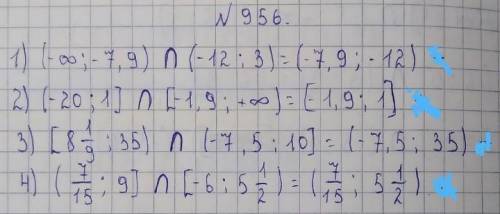 №956.
1) (-∞; -7,9) ∩ (-12; 3) = (-7,9; -12)
2) (-20; 1] ∩ [-1,9; +∞) = [-1,9; 1]
3) [8 1/9; 35) ∩ (-7,5; 10] = (-7,5; 35)
4) (7/15; 9] ∩ [-6; 5 1/2) = (7/15; 5 1/2)